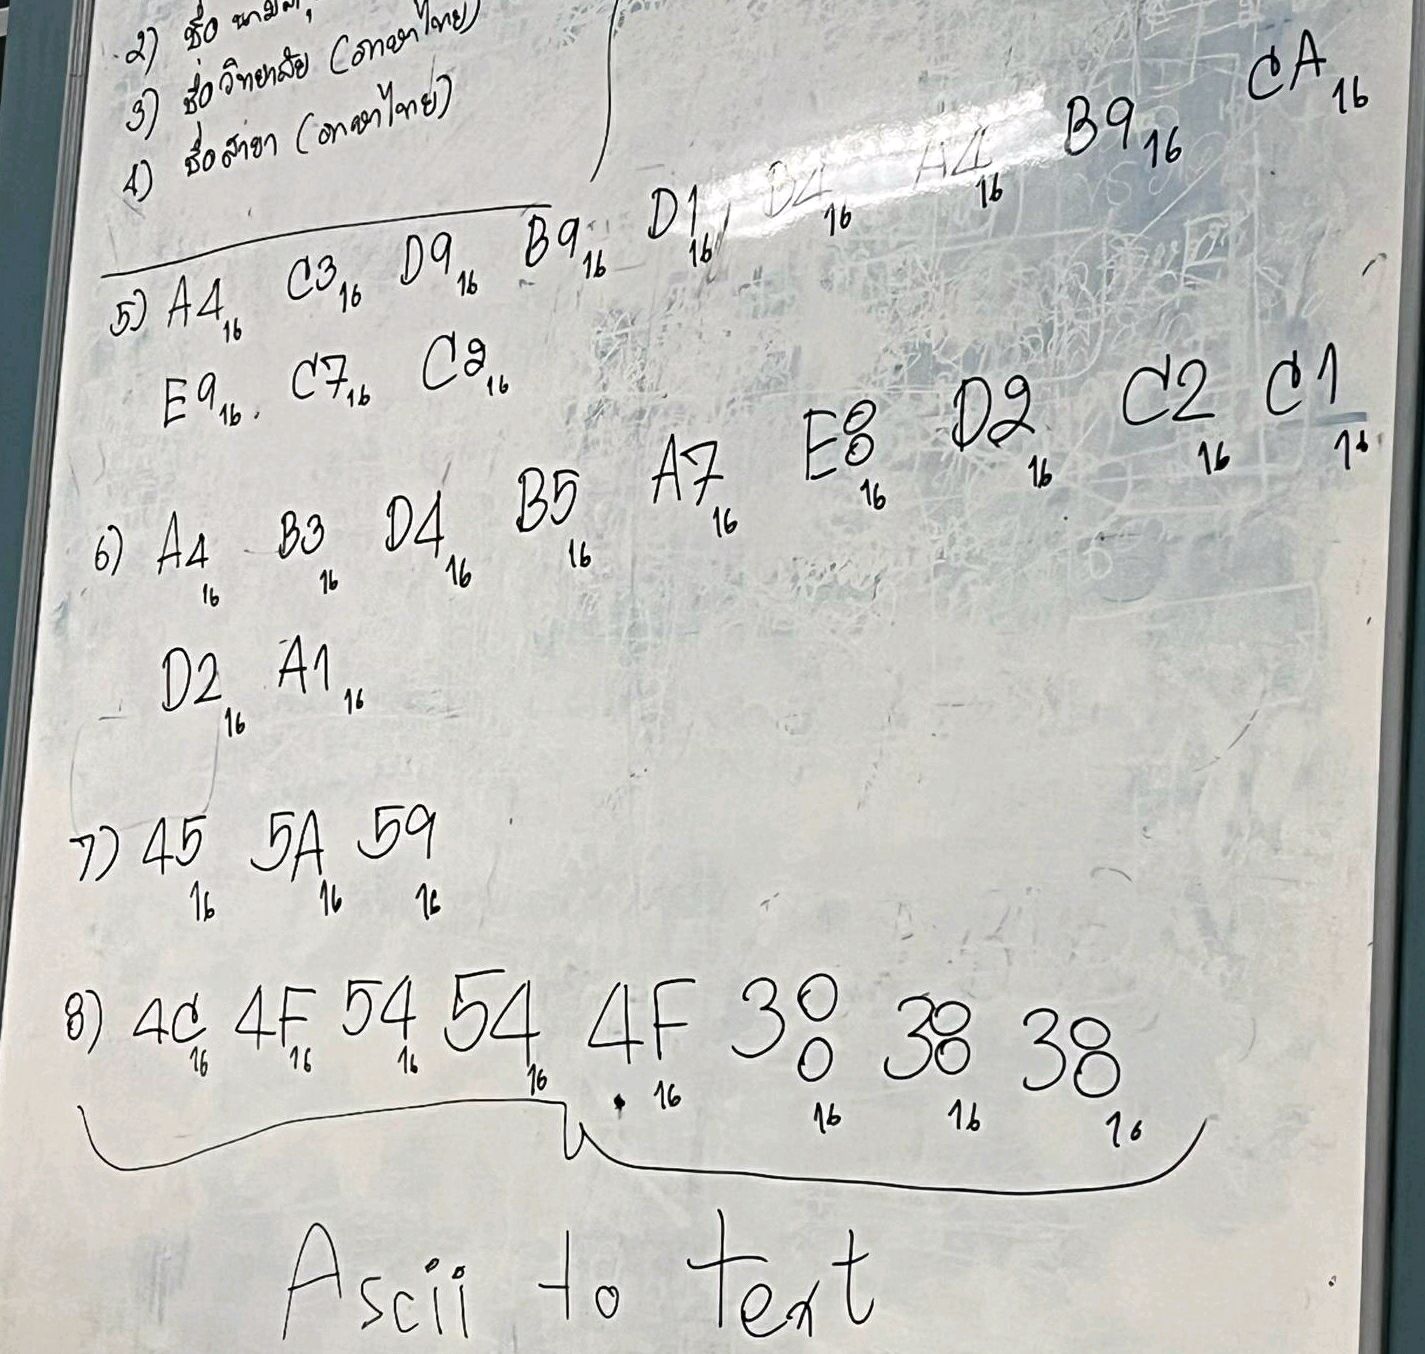 2) ชื่อ
3) ชื่อวิทยาลัย (ภาษาไทย)
4) ชื่อสาขา (ภาษาไทย)
5) A4₁₆ C3₁₆ D9₁₆ B9₁₆ D1₁₆ D4₁₆ A4₁₆ B9₁₆ CA₁₆
E9₁₆ C7₁₆ C2₁₆
6) A4₁₆ B3₁₆ D4₁₆ B5₁₆ A7₁₆ E8₁₆ D2₁₆ C2₁₆ C1₁₆
D2₁₆ A1₁₆
7) 45₁₆ 5A₁₆ 59₁₆
8) 4C₁₆ 4F₁₆ 54₁₆ 54₁₆ 4F₁₆ 38₁₆ 38₁₆ 38₁₆
Ascii to text